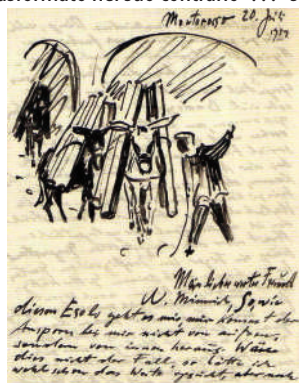 Monterosso 20. Juli
Mein lieber werter Freund
Minnich, Sowie
diesem Esels geht es mir nur kommt der
Ansporn bei mir nicht von außen,
sondern von innen heraus. Wäre
dies nicht der Fall, so hätte ich
wohl schon das Weite gesucht, aber